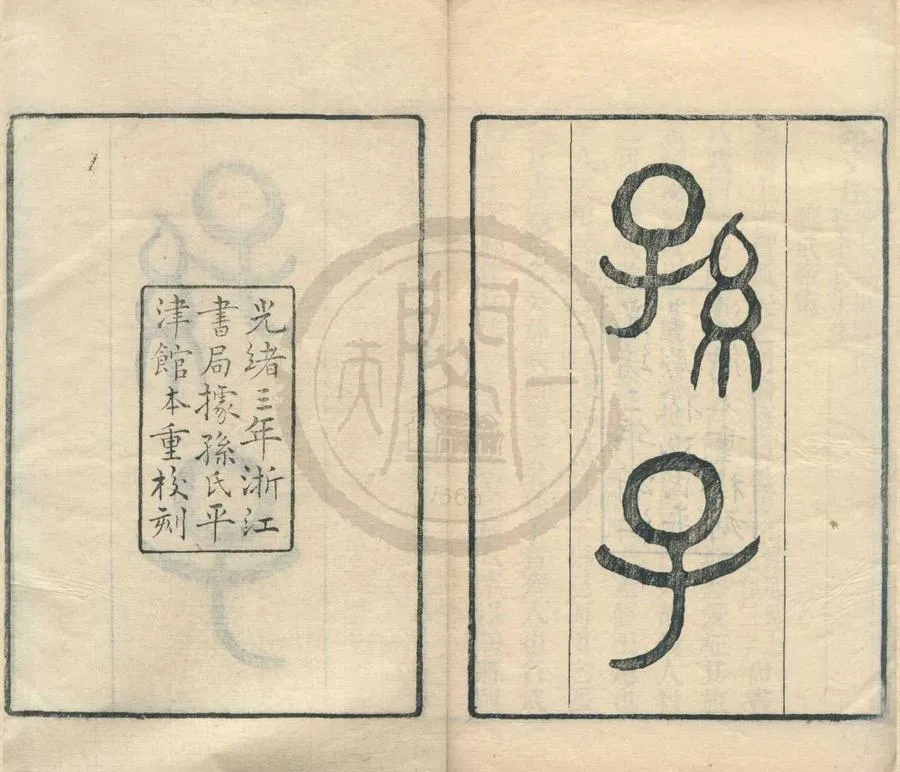 孫子
光緒三年浙江
書局據孫氏平
津館本重校刻